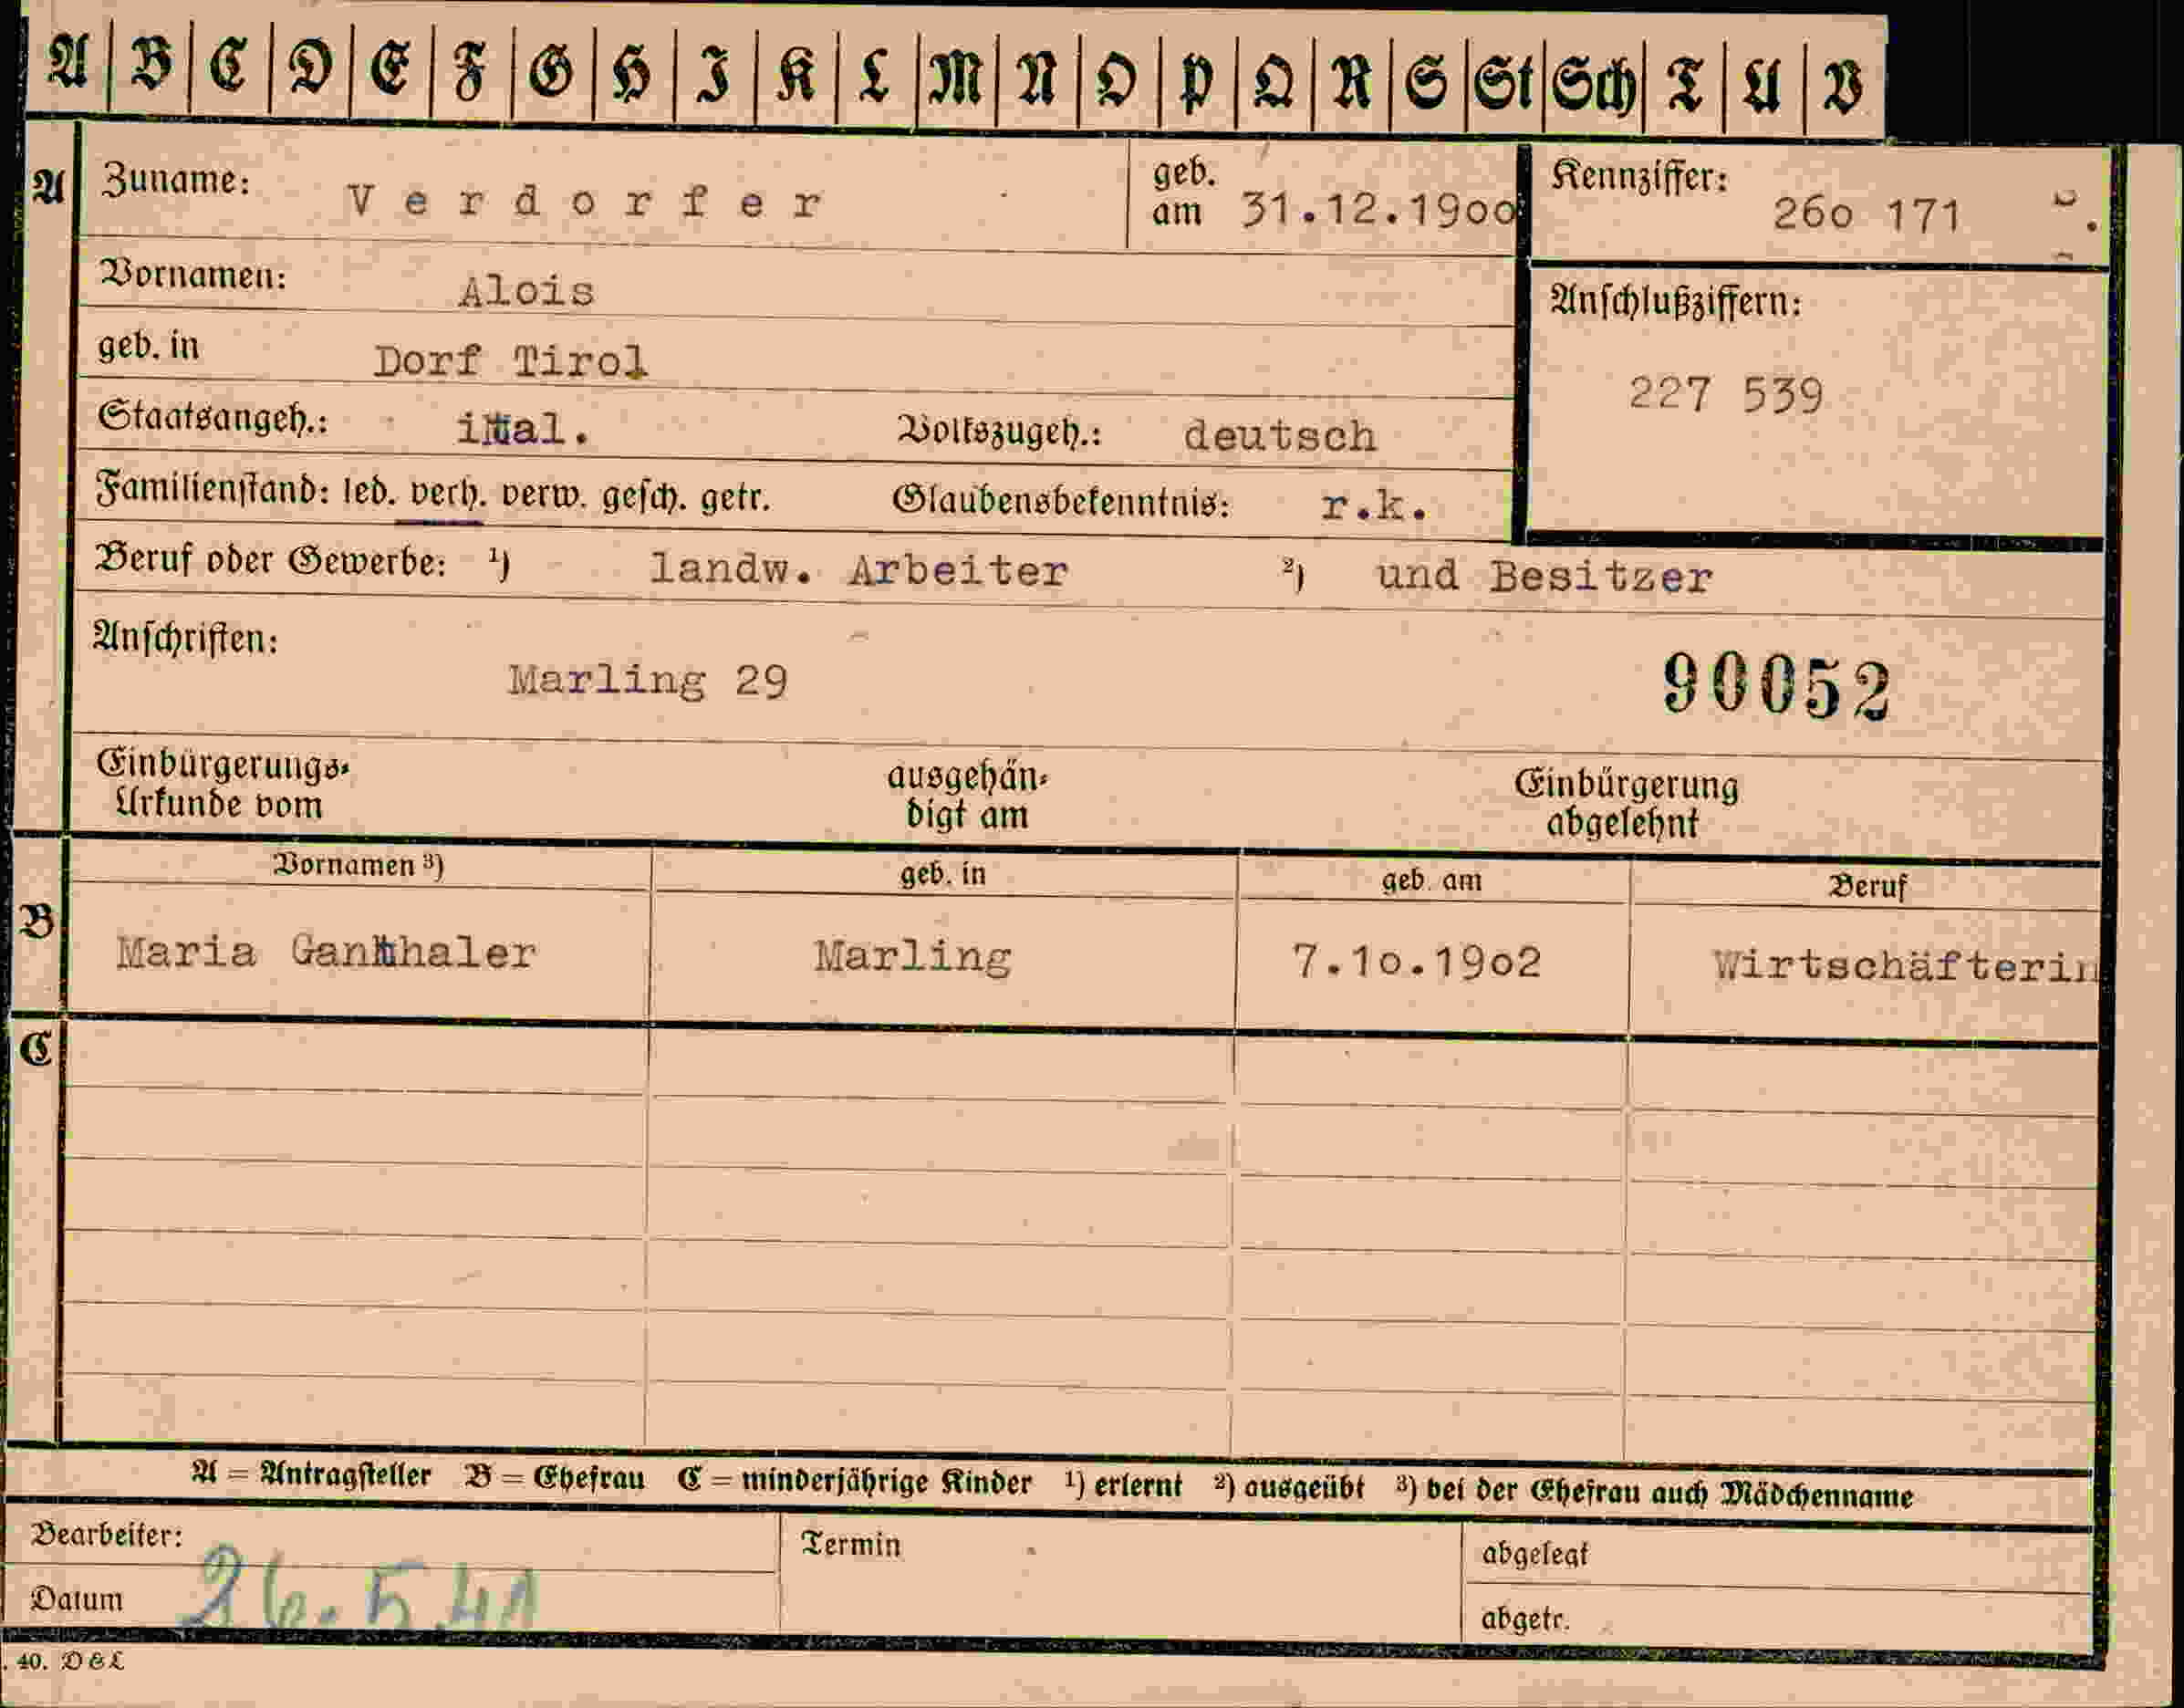 A B C D E F G H I K L M N O P Q R S St Sch T U V
A Zuname: Verdorfer geb. am 31.12.1900 Kennziffer: 260 171
Vornamen: Alois
Anschlußziffern:
geb. in Dorf Tirol
227 539
Staatsangeh.: ital. Volkszugeh.: deutsch
Familienstand: led. verh. verw. gesch. getr. Glaubensbekenntnis: r.k.
Beruf oder Gewerbe: ¹) landw. Arbeiter ²) und Besitzer
Anschriften:
Marling 29 90052
Einbürgerungs-Urkunde vom ausgehändigt am Einbürgerung abgelehnt
Vornamen ³) geb. in geb. am Beruf
B Maria Ganthaler Marling 7.10.1902 Wirtschäfterin
C
A = Antragsteller B = Ehefrau C = minderjährige Kinder ¹) erlernt ²) ausgeübt ³) bei der Ehefrau auch Mädchenname
Bearbeiter: Termin abgelegt
Datum 26.5.41 abgetr.
. 40. D&L